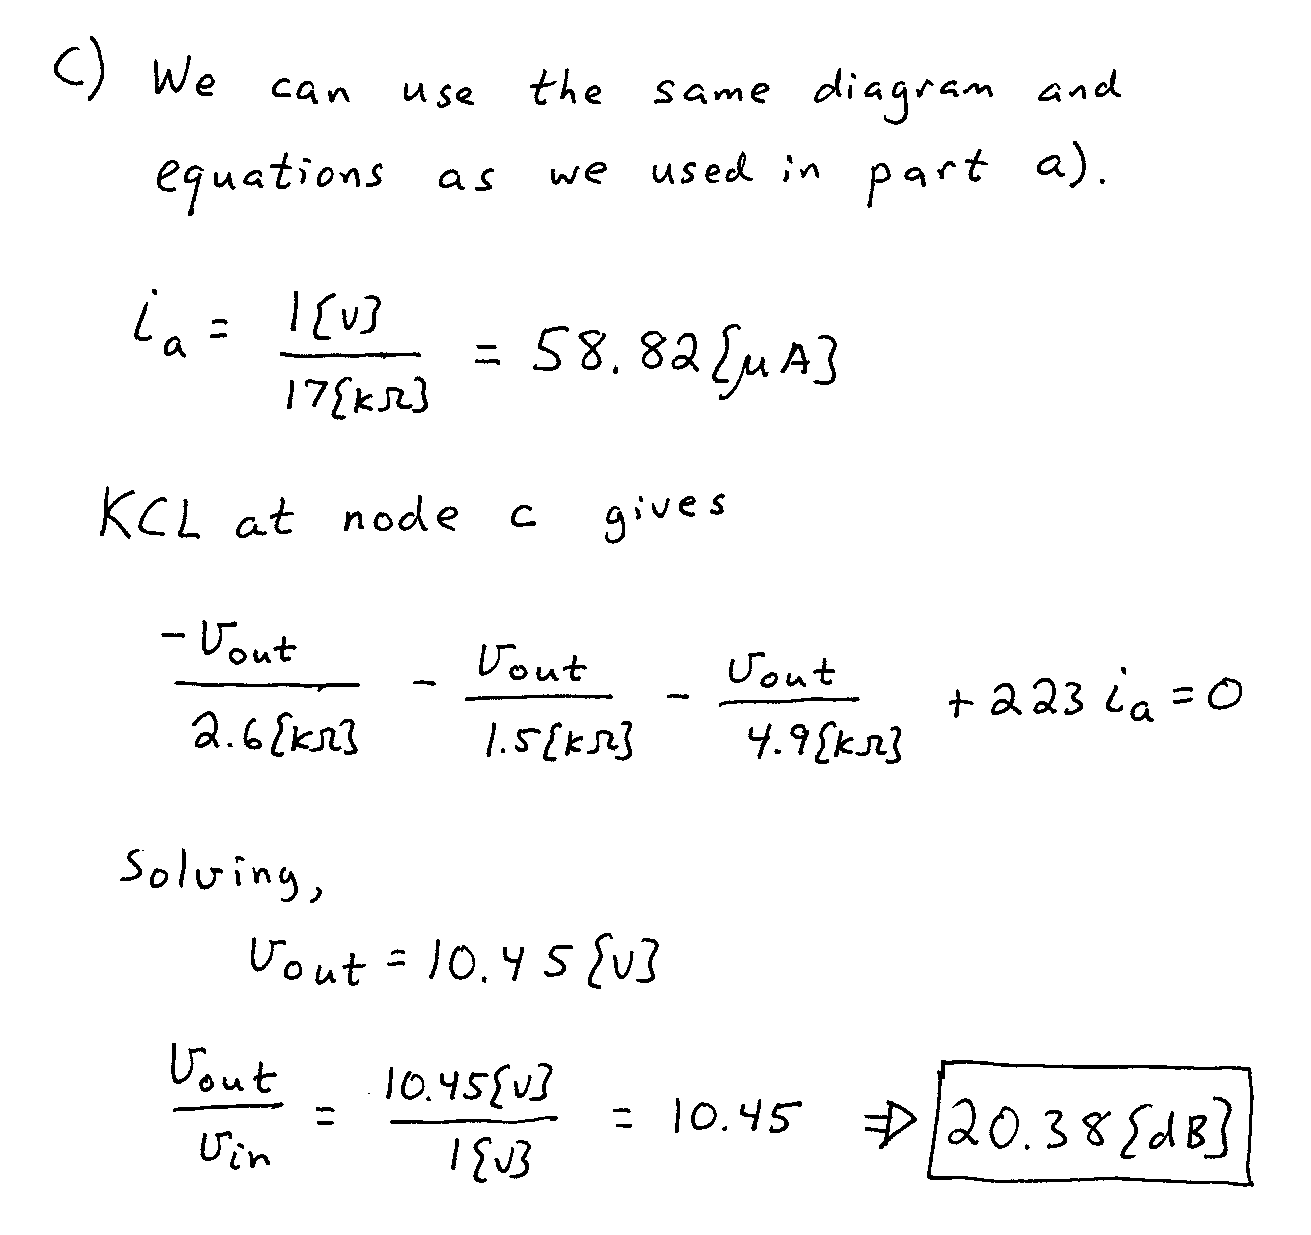 c) We can use the same diagram and
equations as we used in part a).
i_a = 1{V} / 17{kΩ} = 58.82{μA}
KCL at node c gives
-v_out / 2.6{kΩ} - v_out / 1.5{kΩ} - v_out / 4.9{kΩ} + 223 i_a = 0
Solving,
v_out = 10.45{V}
v_out / v_in = 10.45{V} / 1{V} = 10.45 ⇒ 20.38{dB}